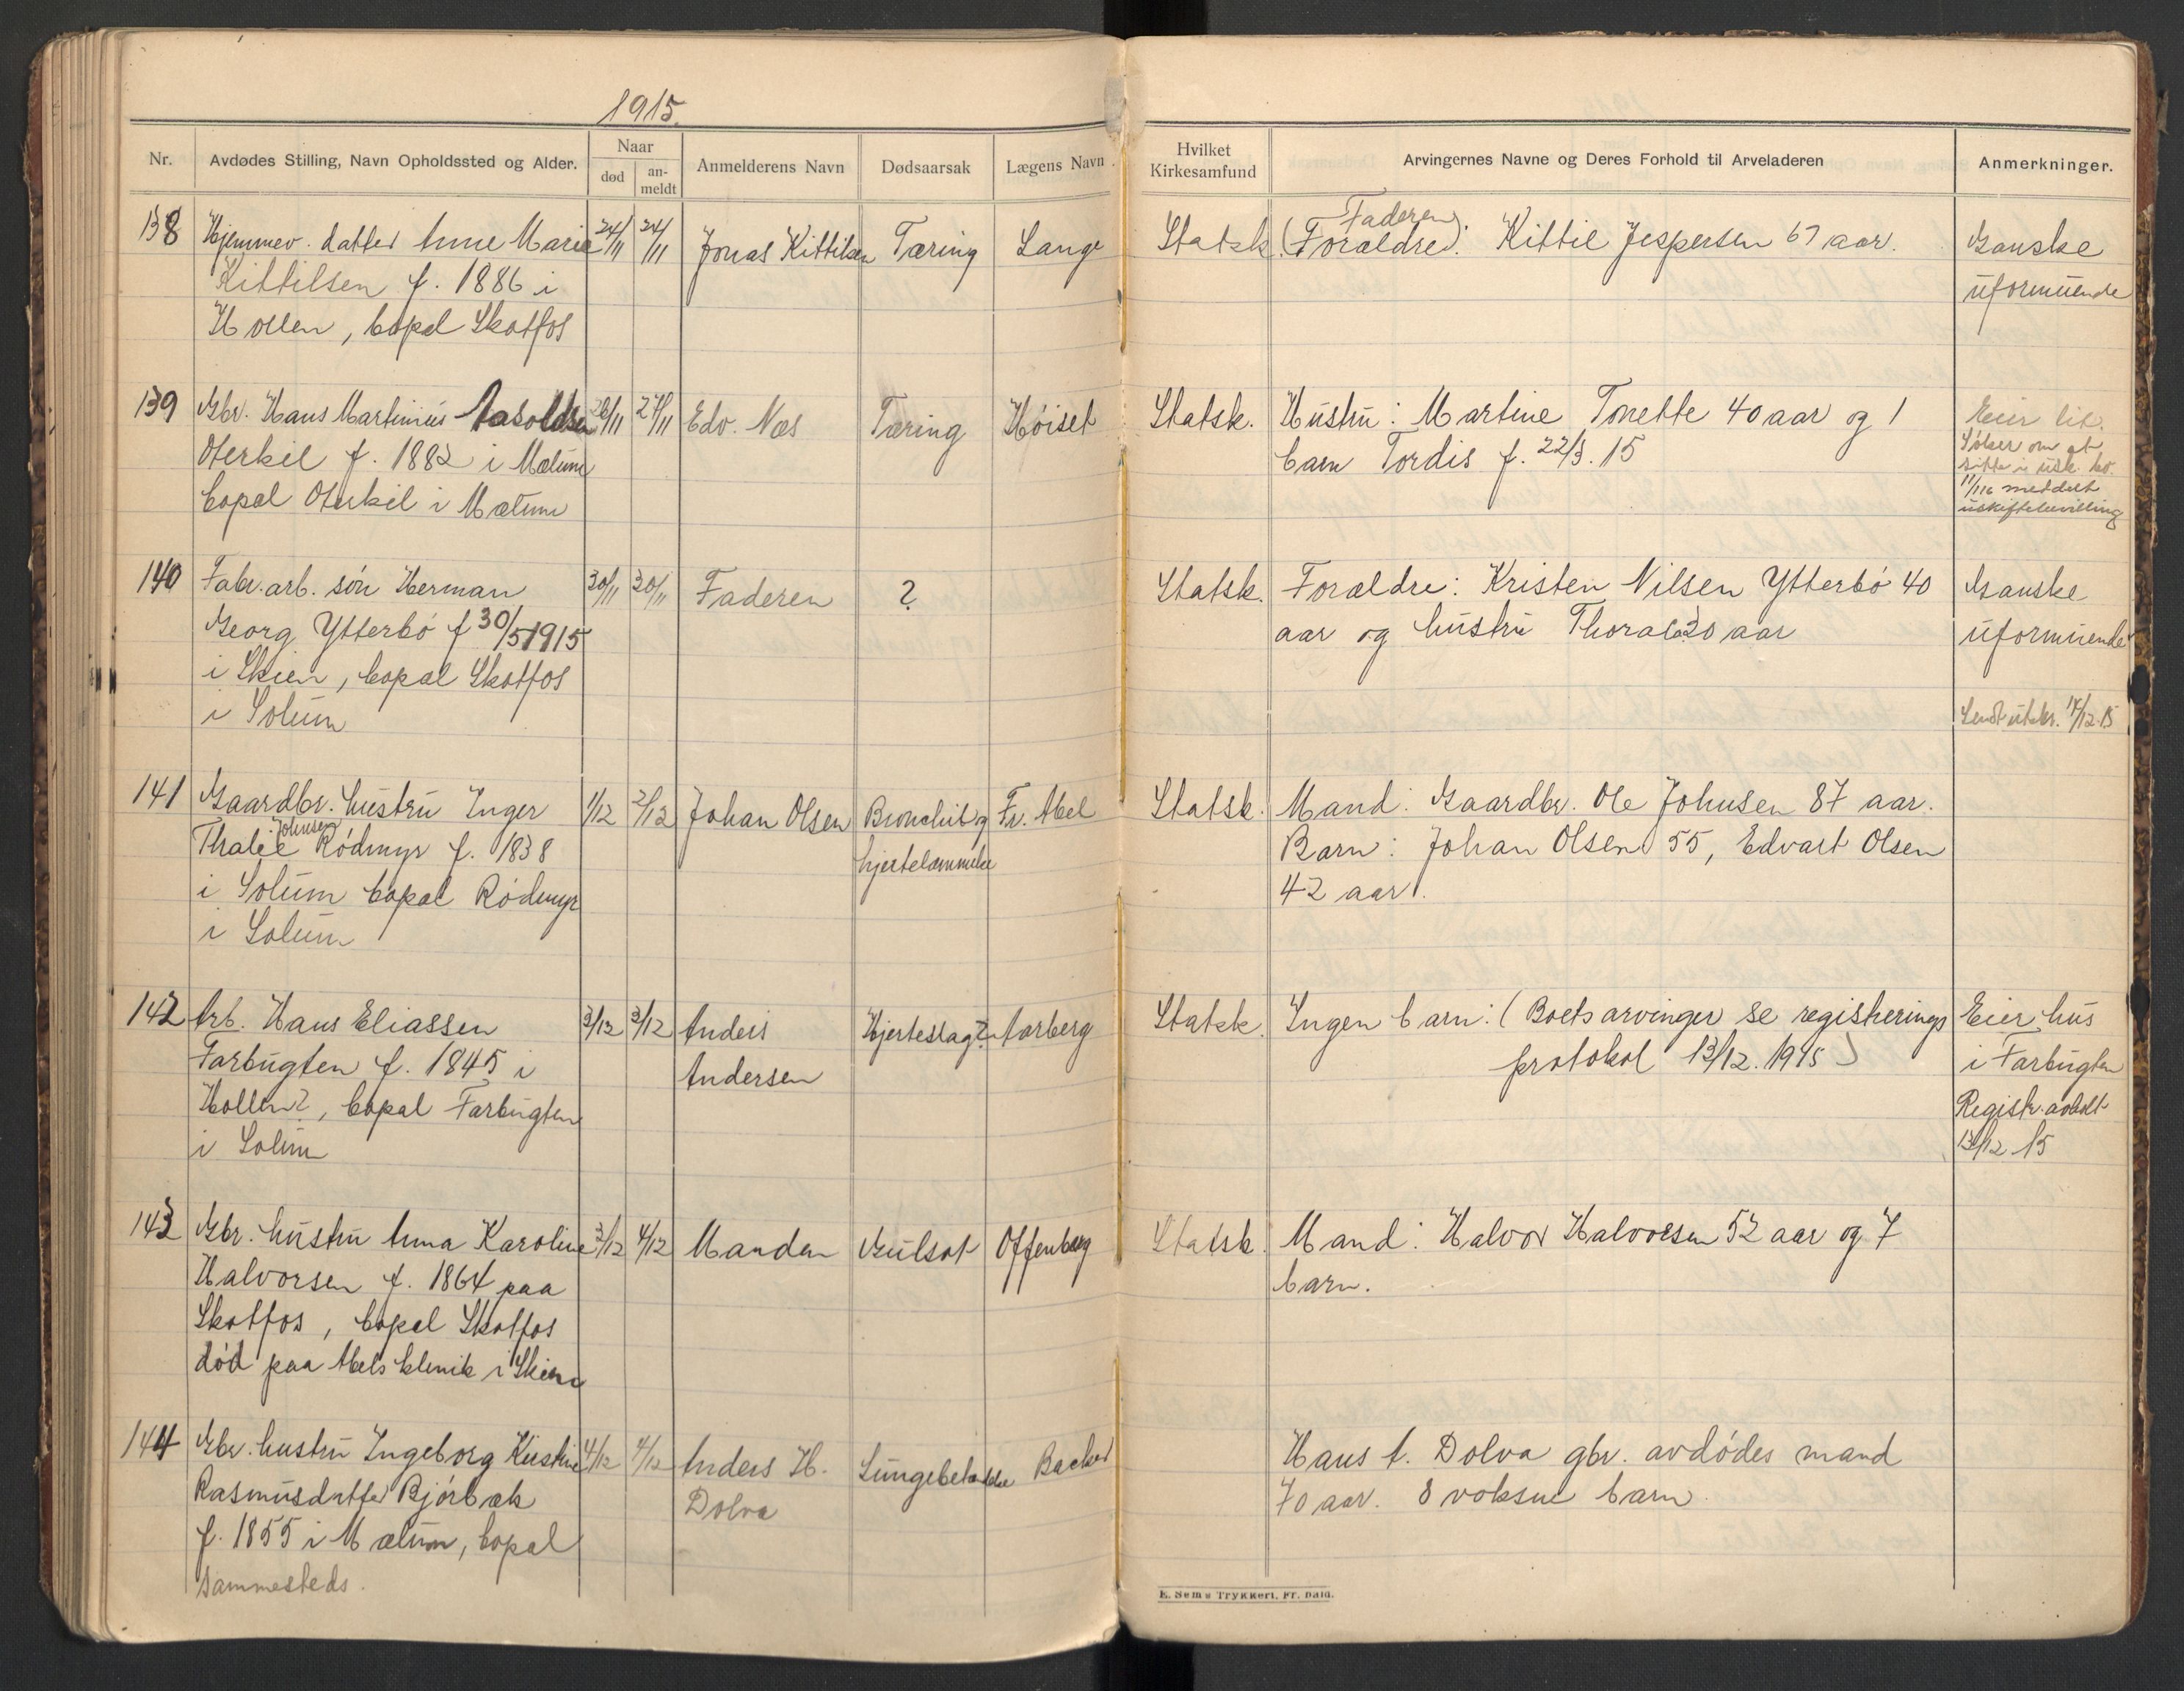 1915.
Nr.
Avdødes Stilling, Navn Opholdssted og Alder.
Naar
død
an-
meldt
Anmelderens Navn
Dødsaarsak
Lægens Navn
Hvilket
Kirkesamfund
Arvingernes Navne og Deres Forhold til Arveladeren
Anmerkninger.
138 Hjemmev. datter Anne Marie 24/11 24/11 Jonas Kittilsen Tæring Lange Statsk. (Forældre): Kittil Jespersen 67 aar. Ganske
Faderen
Kittilsen f. 1886 i uformuende
Hollen, bopæl Skotfos
139 Gbr. Hans Martinius Aasoldsen 26/11 27/11 Edv. Næs Tæring Høiset Statsk. Hustru: Martine Tonette 40 aar og 1 Eier lit.
Oterkil f. 1882 i Mælum barn Tordis f. 22/3.15 Søker om at
sitte i usk. bo.
bopæl Oterkil i Mælum 11/1 16 meddelt
uskiftebevilling
140 Fabr.arb. søn Herman 30/11 30/11 Faderen ? Statsk. Forældre: Kristen Nilsen Ytterbö 40 Ganske
Georg Ytterbö f 30/5 1915 aar og hustru Thora 30 aar uformuende
i Skien, bopæl Skotfos
i Solum Sendt utskr. 14/12.15
141 Gaardbr. hustru Inger 1/12 2/12 Johan Olsen Bronchit og Fr. Abel Statsk. Mand: Gaardbr. Ole Johnsen 87 aar.
Johnsen
Thalie Rödmyr f. 1838 hjertelammelse Barn: Johan Olsen 55, Edvart Olsen
i Solum bopæl Rödmyr 42 aar.
i Solum
142 Arb. Hans Eliassen 3/12 3/12 Anders Hjerteslag? Aarberg Statsk. Ingen barn: (Boets arvinger se registrerings Eier hus
Farbugten f. 1845 i Andersen protokol 13/12.1915) i Farbugten
Hollen?, bopæl Farbugten Registr. avholdt
i Solum 13/12 15
143 Gbr. hustru Anna Karoline 3/12 4/12 Manden Gulsot Offenberg Statsk. Mand: Halvor Halvorsen 52 aar og 7
Halvorsen f. 1864 paa barn.
Skotfos, bopæl Skotfos
død paa Abels klinik i Skien
144 Gbr. hustru Ingeborg Kristine 4/12 4/12 Anders H. Lungebetændelse Backer Hans A. Dolva gbr. avdødes mand
Rasmusdatter Bjørbæk Dolva 70 aar. 8 voksne barn.
f. 1855 i Mælum, bopæl
sammesteds.
E. Sems Trykkeri, Fr. hald.